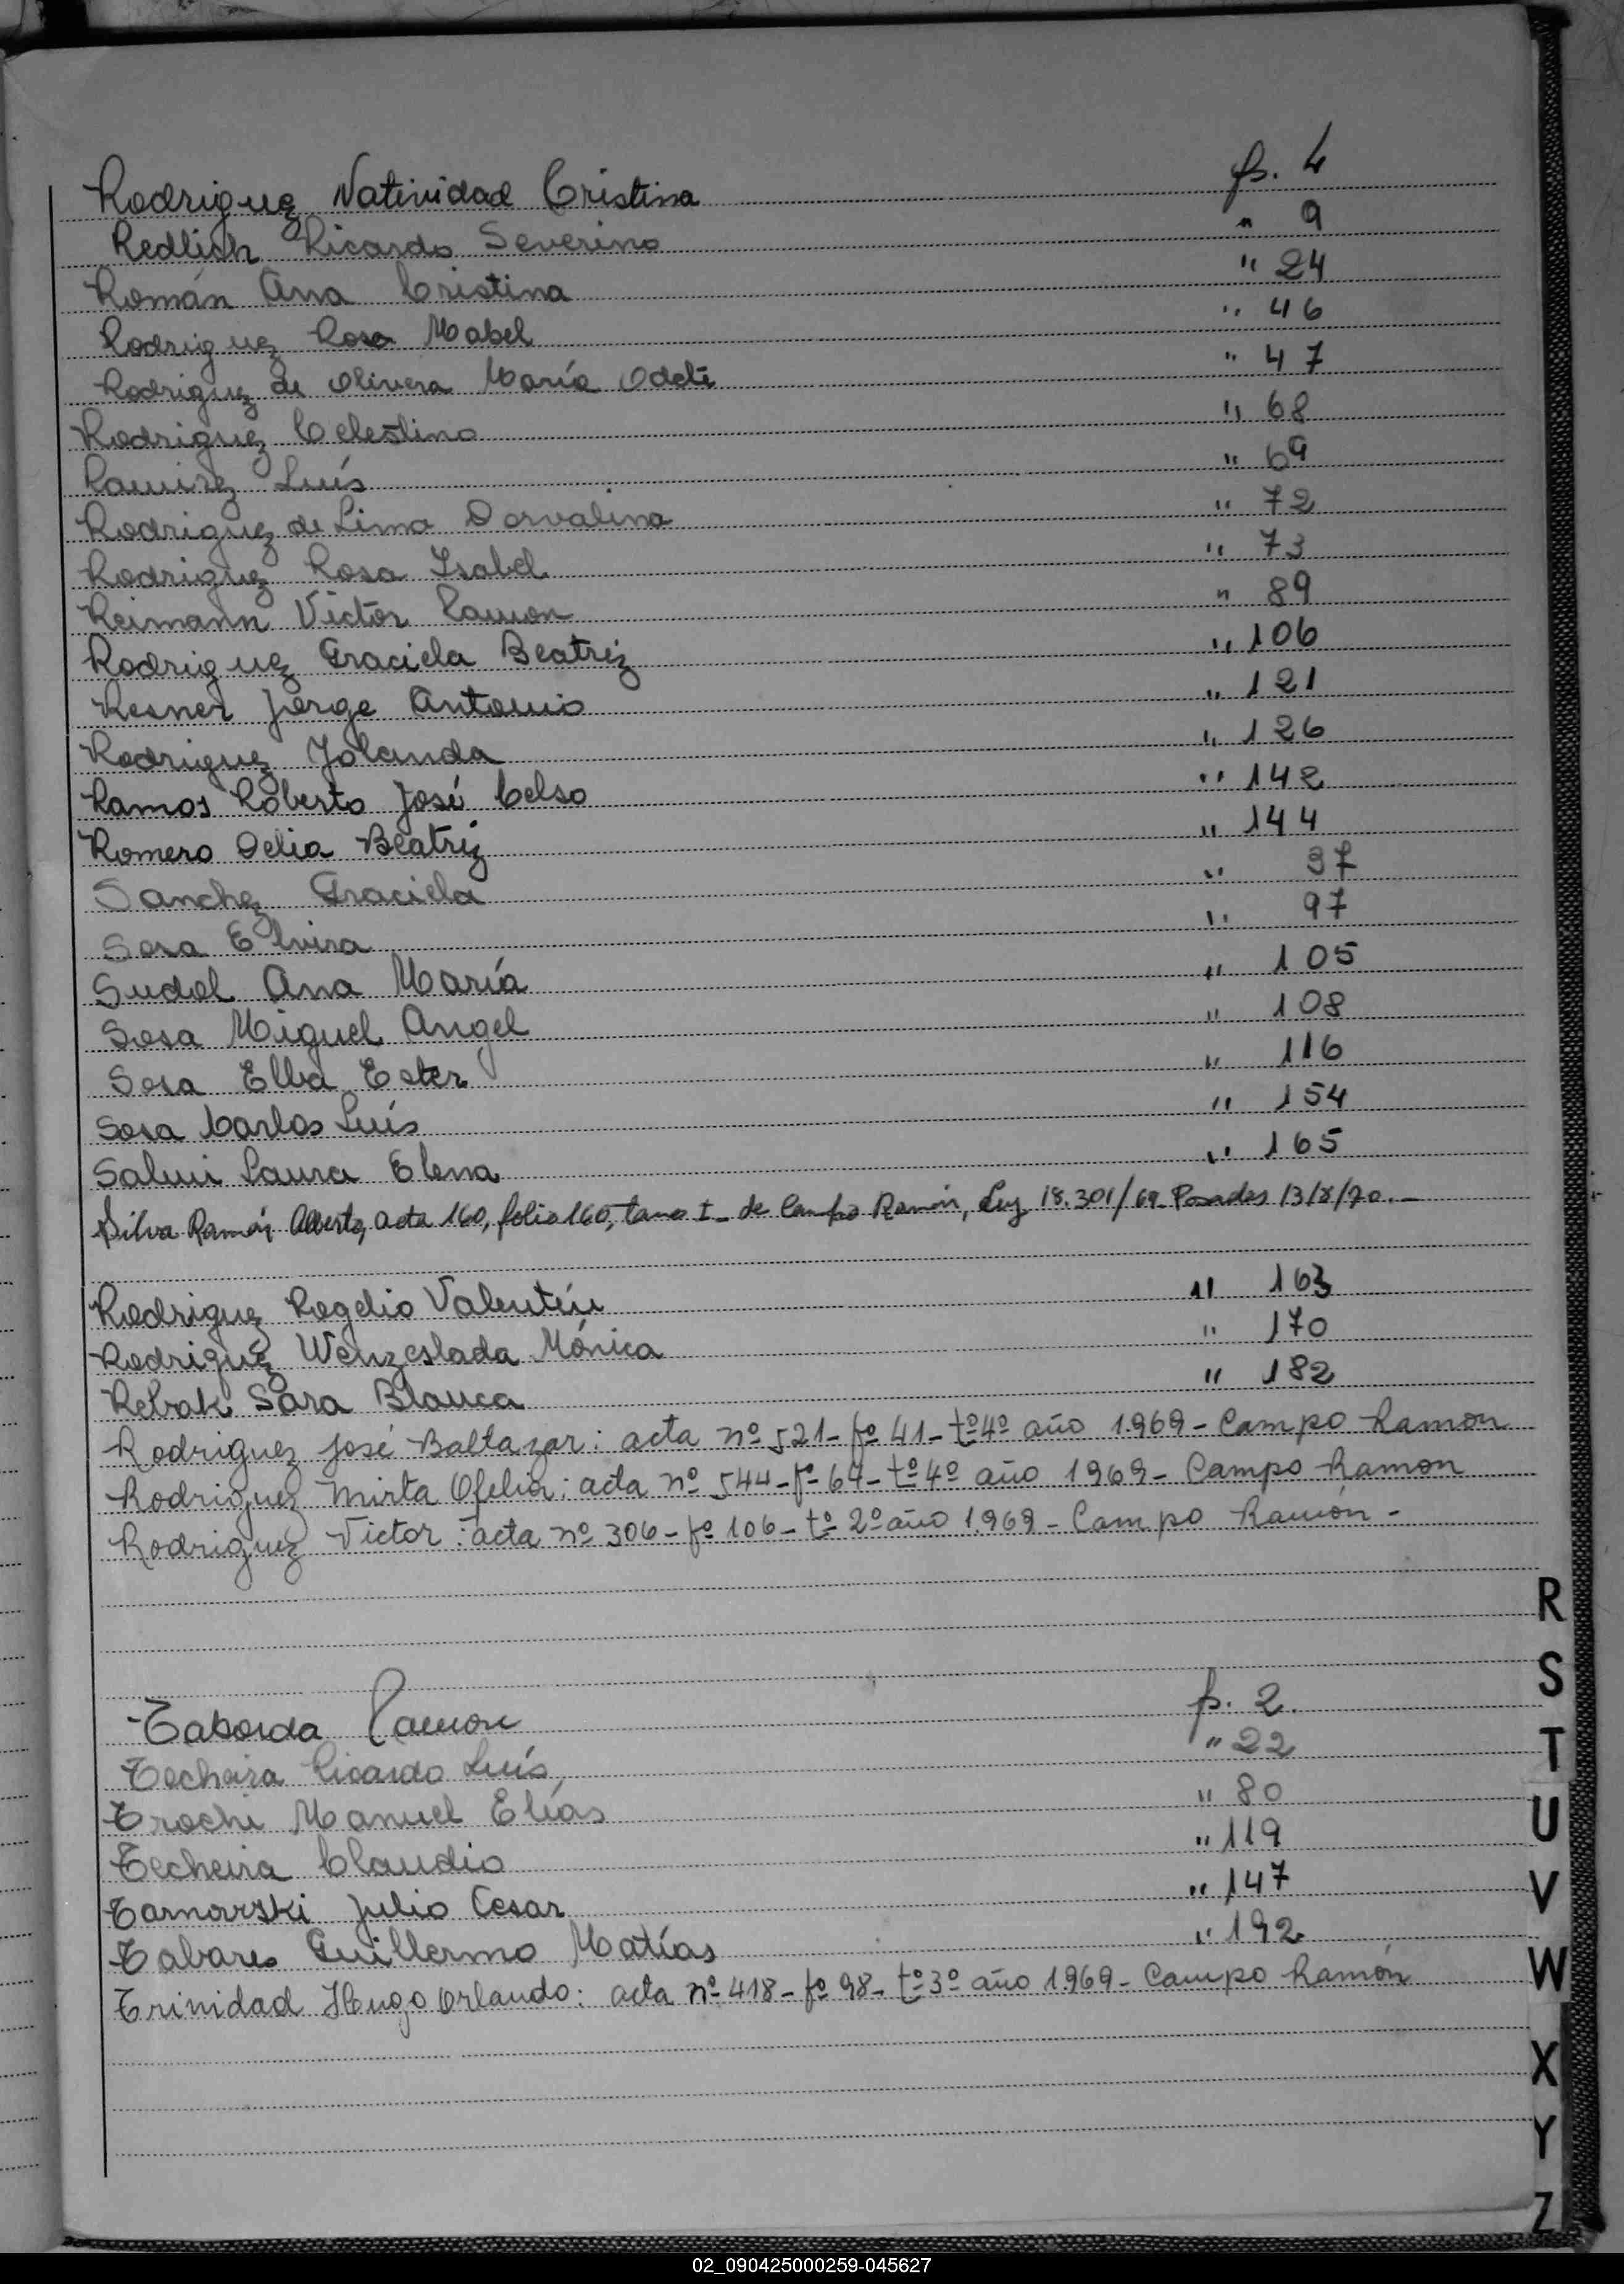 Rodriguez Natividad Cristina fs. 4
Redlich Ricardo Severino " 9
Román Ana Cristina " 24
Rodriguez Rosa Mabel " 46
Rodriguez de Olivera María Odete " 47
Rodriguez Celestino " 68
Ramirez Luís " 69
Rodriguez de Lima Dorvalina " 72
Rodriguez Rosa Isabel " 73
Reimann Victor Ramon " 89
Rodriguez Graciela Beatriz " 106
Resner Jorge Antonio " 121
Rodriguez Yolanda " 126
Ramos Roberto José Celso " 142
Romero Delia Beatriz " 144
Sanchez Graciela " 37
Sosa Elvira " 97
Sudol Ana María " 105
Sosa Miguel Angel " 108
Sosa Elba Ester " 116
Sosa Carlos Luís " 154
Salvi Laura Elena " 165
Silva Ramón Alberto, acta 160, folio 160, tomo I - de Campo Ramón, Ley 18.301/69 - Posadas 13/8/70.-
Rodriguez Rogelio Valentín " 163
Rodriguez Wenzeslada Mónica " 170
Rebak Sara Blanca " 182
Rodriguez José Baltazar: acta nº 521- fº 41- tº 4º año 1.969- Campo Ramon
Rodriguez Mirta Ofelia: acta nº 544- fº 64- tº 4º año 1969- Campo Ramon
Rodriguez Victor: acta nº 306- fº 106- tº 2º año 1.969- Campo Ramón-
Taborda Ramon fs. 2.
Techeira Ricardo Luís " 22
Trochi Manuel Elías " 80
Techeira Claudio " 119
Tarnovski Julio Cesar " 147
Tabares Guillermo Matías " 192
Trinidad Hugo Orlando: acta nº 418- fº 98- tº 3º año 1969- Campo Ramón
R
S
T
U
V
W
X
Y
Z
02_090425000259-045627